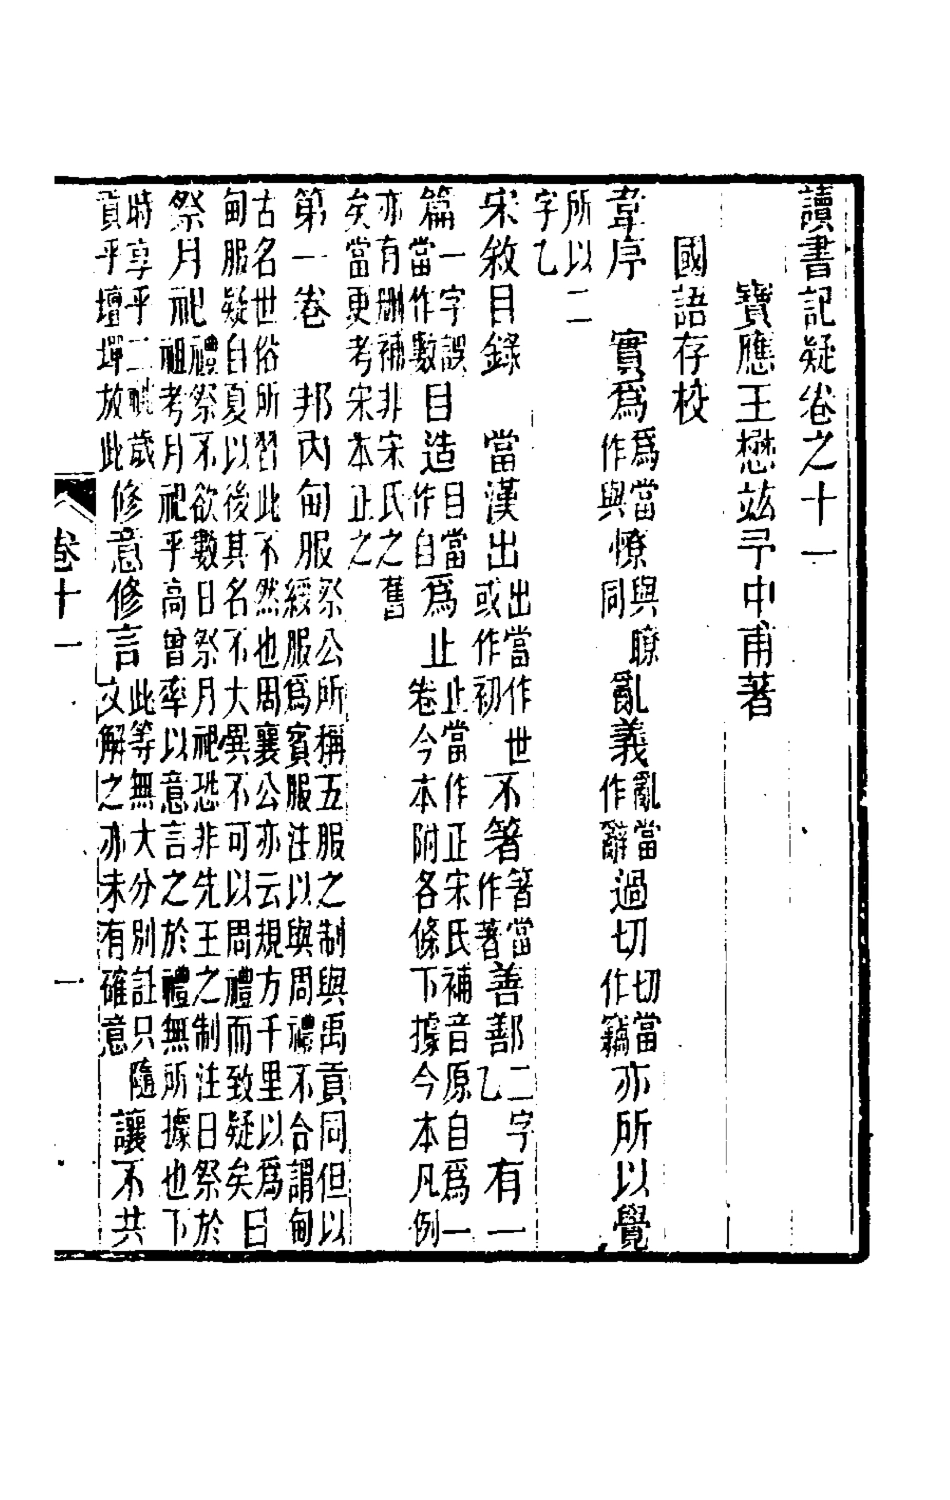 讀書記疑卷之十一
寶應王懋竑予中甫著
國語存校
韋序　實爲爲當作與憭與瞭同亂義亂當作辭過切切當作竊亦所以覺
所以二字乙
宋敘目錄　當漢出出當作世或作初不箸箸當作著善鄯二字乙有一
篇一字誤當作數目造目當作自爲止止當作正宋氏補音原自爲一卷今本附各條下據今本凡例
亦有刪補非宋氏之舊矣當更考宋本正之
第一卷　邦内甸服祭公所稱五服之制與禹貢同但以綏服爲賓服注以與周禮不合謂甸
古名世俗所習此不然也周襄公亦云規方千里以爲甸服疑自夏以後其名不大異不可以周禮而致疑矣日
祭月祀禮祭不欲數日祭月祀恐非先王之制注日祭於祖考月祀乎高曾率以意言之於禮無所據也下
時享乎二祧歲貢乎壇墠放此修意修言此等無大分別註只隨文解之亦未有確意讓不共
卷十一　一